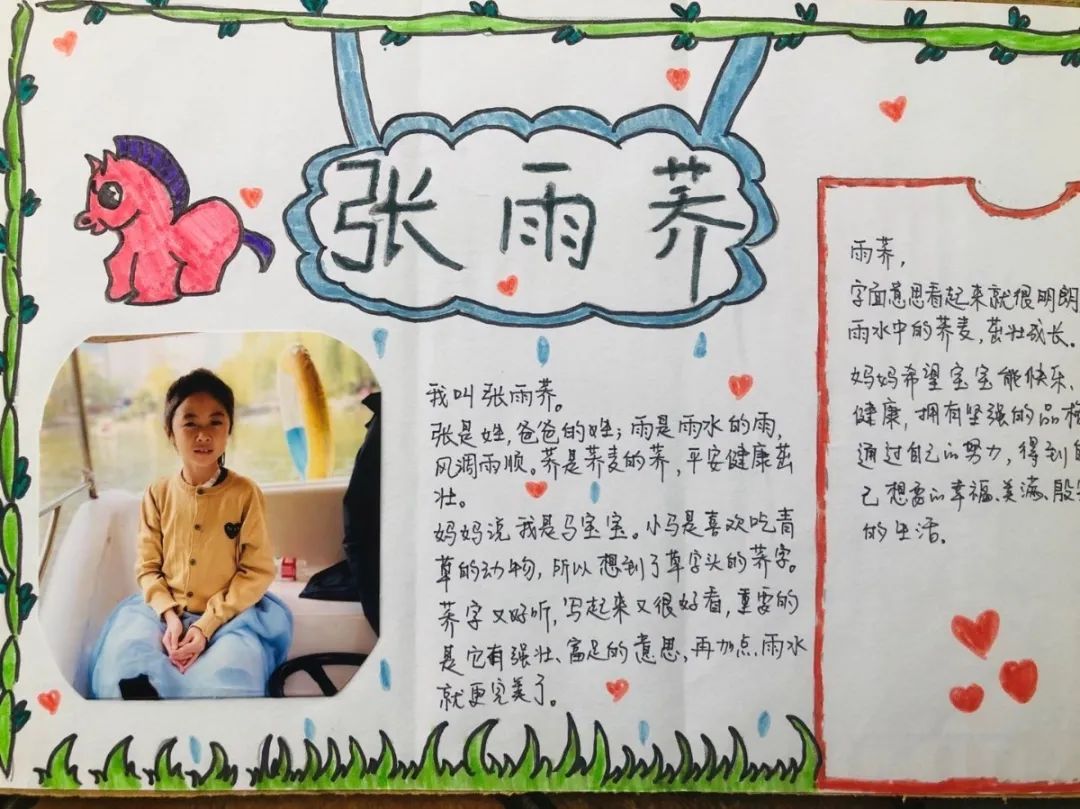 张雨荞
我叫张雨荞。
张是姓,爸爸的姓;雨是雨水的雨,
风调雨顺。荞是荞麦的荞,平安健康茁
壮。
妈妈说我是马宝宝。小马是喜欢吃青
草的动物,所以想到了草字头的荞字。
荞字又好听,写起来又很好看,重要的
是它有强壮、富足的意思,再加点雨水
就更完美了。
雨荞,
字面意思看起来就很明朗
雨水中的荞麦,茁壮成长。
妈妈希望宝宝能快乐、
健康,拥有坚强的品格
通过自己的努力,得到自
己想要的幸福、美满、殷实
的生活。